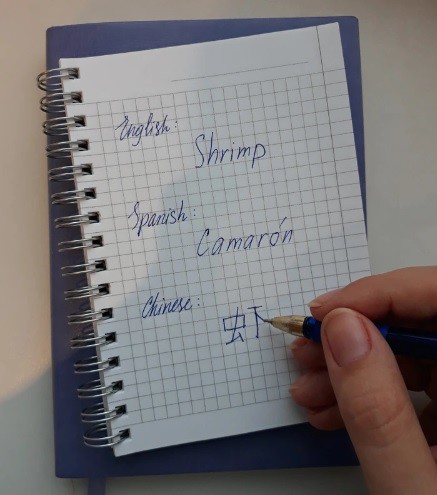 English:
Shrimp
Spanish:
Camarón
Chinese:
虾